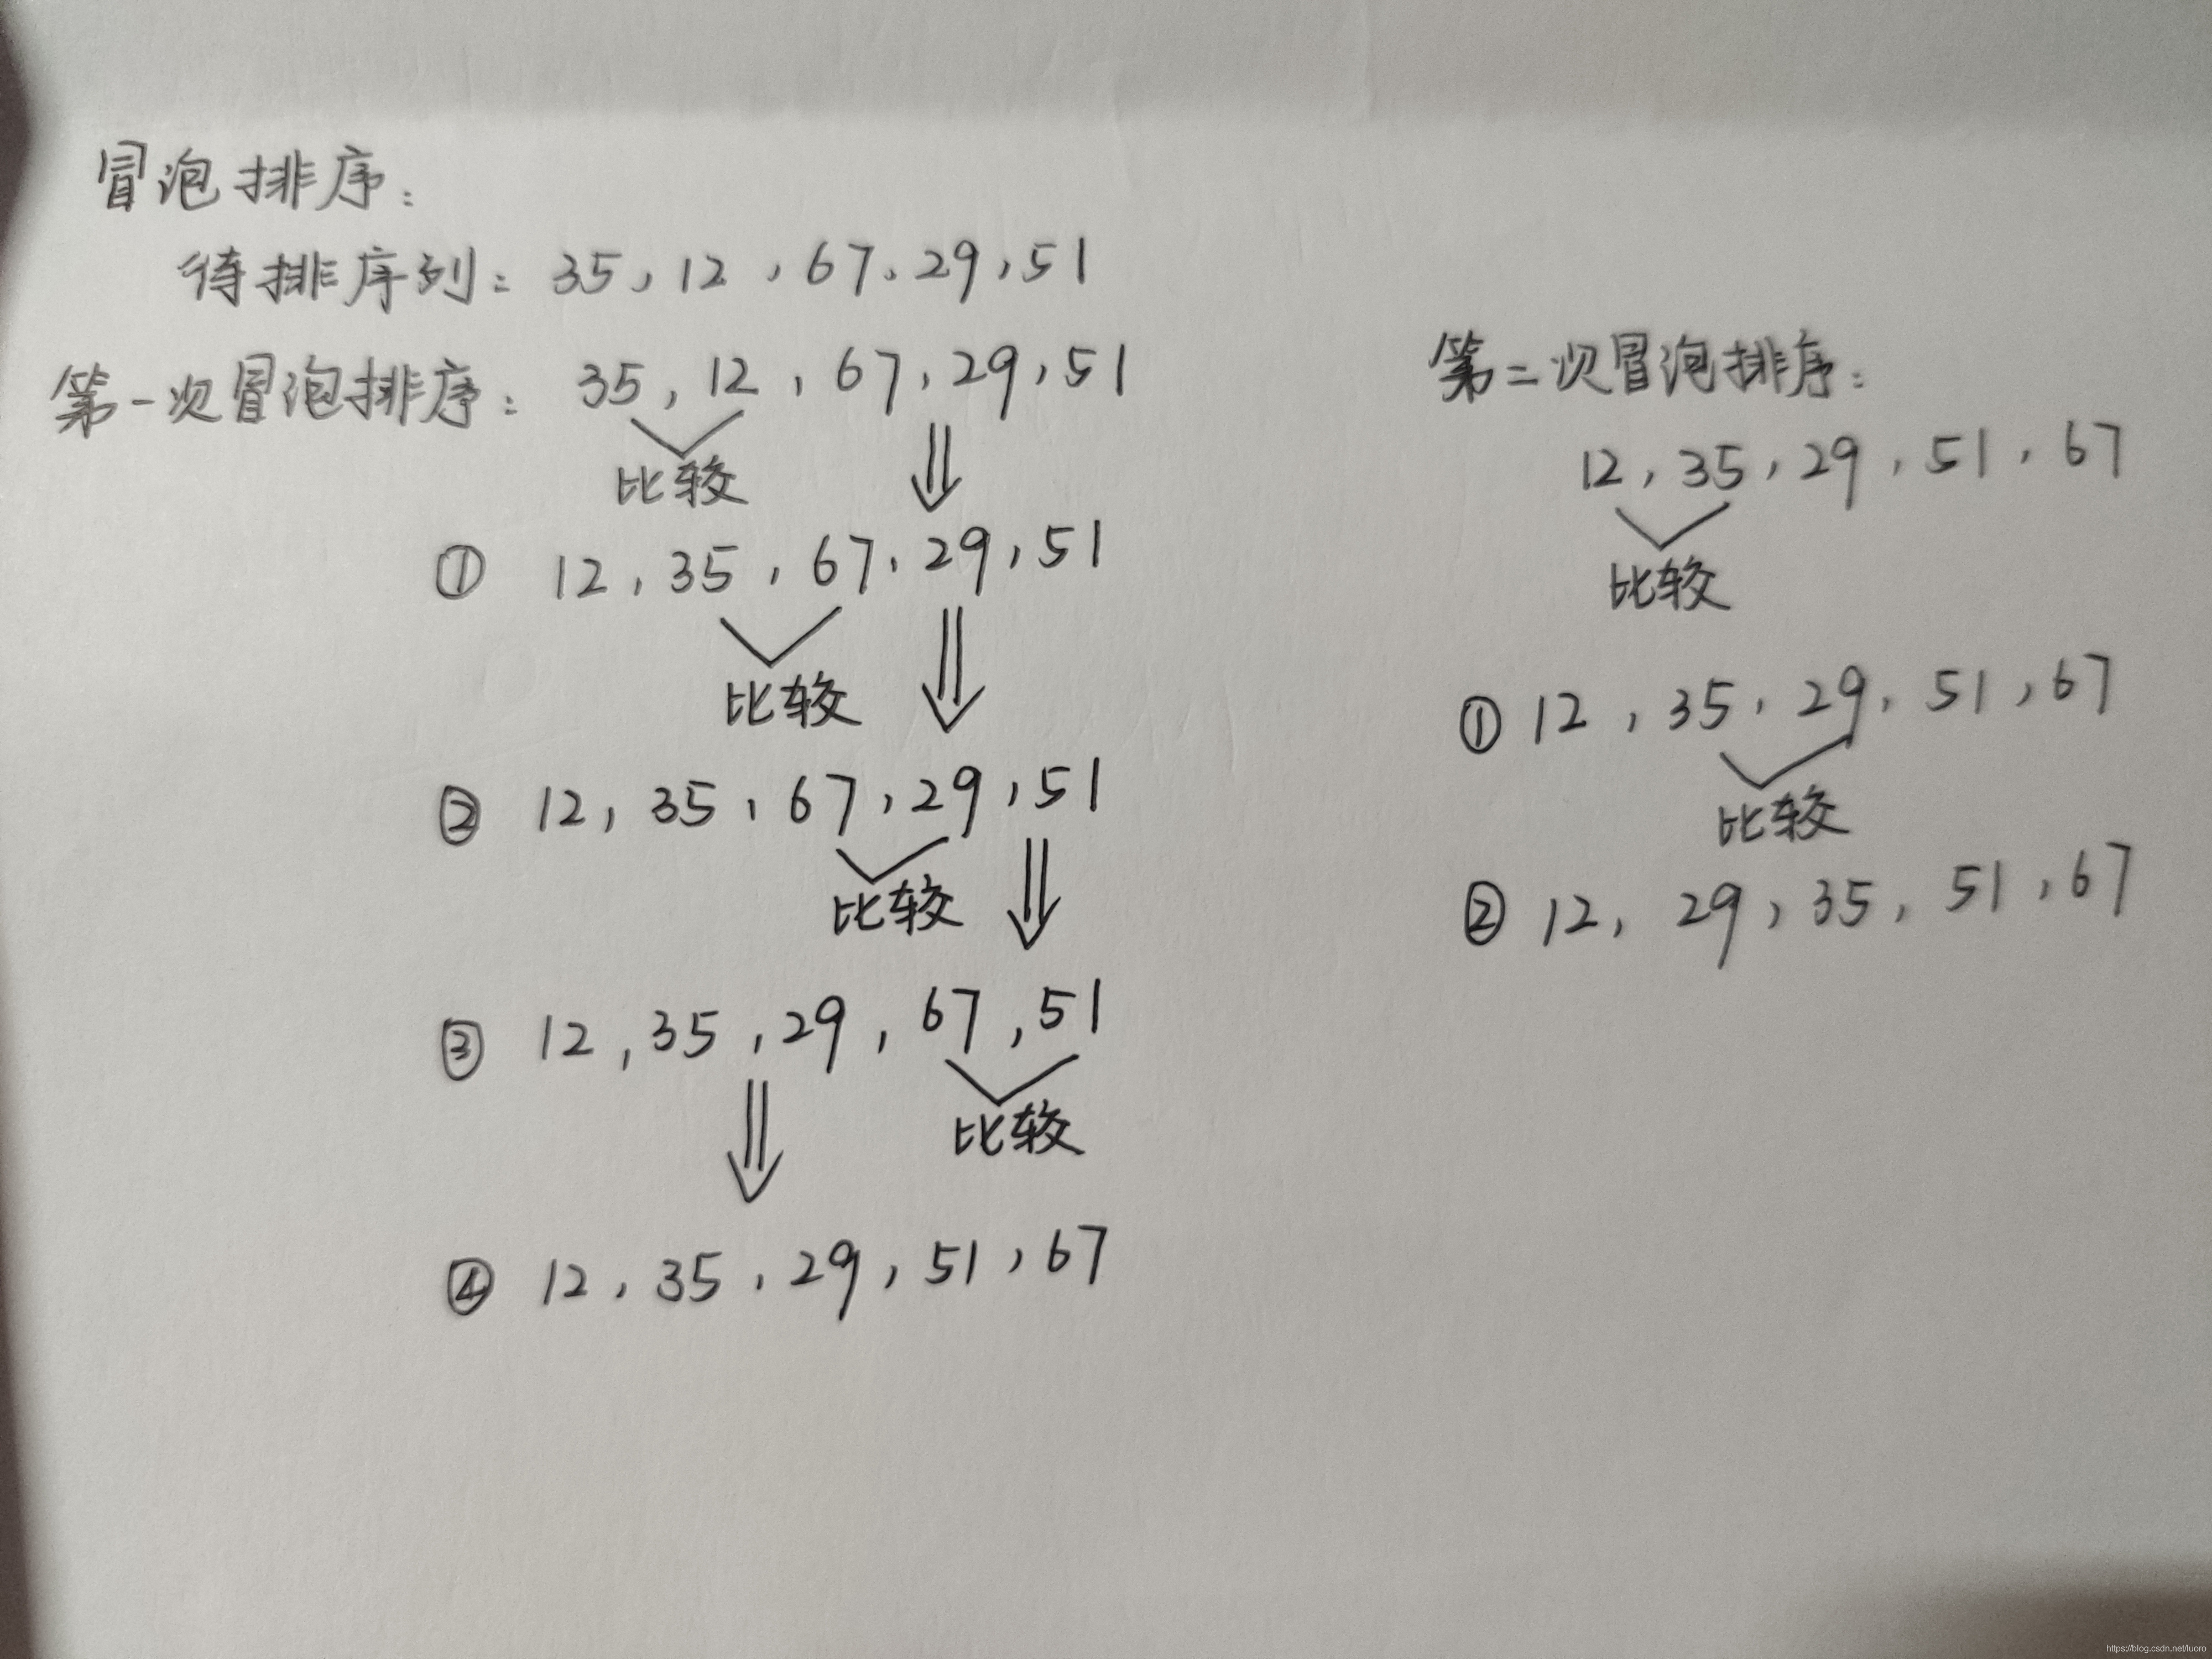 冒泡排序:
待排序列: 35, 12, 67, 29, 51
第一次冒泡排序: 35, 12, 67, 29, 51
比较
① 12, 35, 67, 29, 51
比较
② 12, 35, 67, 29, 51
比较
③ 12, 35, 29, 67, 51
比较
④ 12, 35, 29, 51, 67
第二次冒泡排序:
12, 35, 29, 51, 67
比较
① 12, 35, 29, 51, 67
比较
② 12, 29, 35, 51, 67
https://blog.csdn.net/luoro